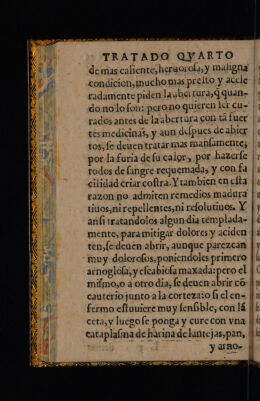 TRATADO QVARTO
de mas caliente, heruorosa, y maligna
condicion, mucho mas presto y acele
radamente piden la abertura, q̃ quan-
do no lo son: pero no quieren ser cu-
rados antes de la abertura con tã fuer
tes medicinas, y aun despues de abier
tos, se deuen tratar mas mansamente,
por la furia de su calor, por hazerse
todos de sangre requemada, y con fa
cilidad criar costra. Y tambien en esta
razon no admiten remedios madura
tiuos, ni repellentes, ni resolutiuos. Y
ansi tratandolos algun dia templada-
mente, para mitigar dolores y aciden
tes, se deuen abrir, aunque parezcan
muy dolorosos, poniendoles primero
arnoglosa, y escabiosa maxada: pero el
mismo, o a otro dia, se deuen abrir cõ
cauterio junto a la corteza: o si el en-
fermo estuuiere muy sensible, con lã
ceta, y luego se ponga y cure con vna
cataplasma de harina de lantejas, pan,
y arno-